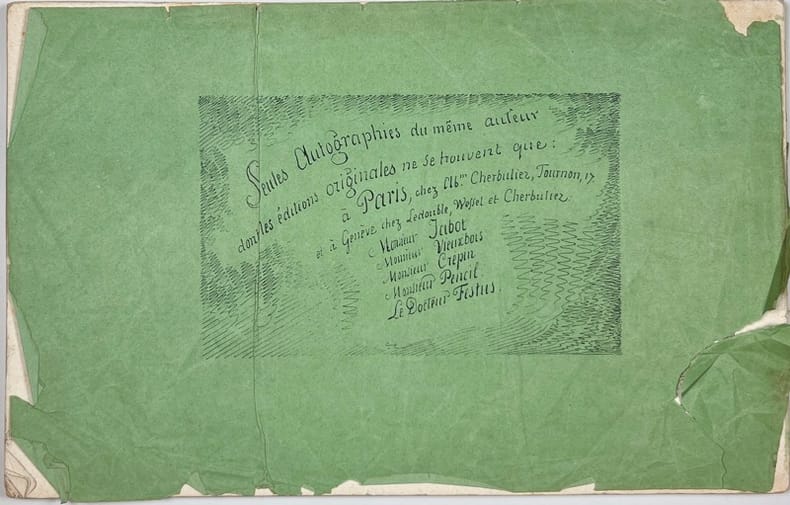 Seules Autographies du même auteur
dont les éditions originales ne se trouvent que :
à Paris, chez Ab.m Cherbuliez, Tournon, 17.
et à Genève chez Ledouble, Wessel et Cherbuliez.
Monsieur Jabot
Monsieur Vieuxbois
Monsieur Crépin
Monsieur Pencil
Le Docteur Festus.